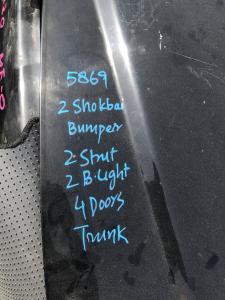 5869
2 Shokbar
Bumper
2 Strut
2 B.Light
4 Doors
Trunk